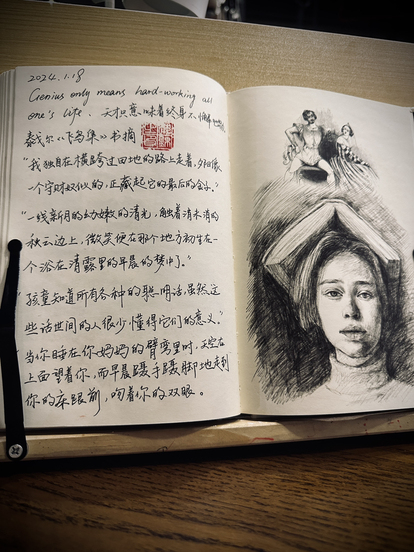 2024.1.18
Genius only means hard-working all
one's life. 天才只意味着终身不懈
泰戈尔《飞鸟集》书摘
"我独自在横跨过田地的路上走着，夕阳像
一个守财奴似的，正藏起它的最后的金子。"
"一线新月的幼嫩的清光，触着消未消的
秋云边上，微笑便在那个地方初生在一
个浴在清露里的早晨的梦中了。"
"孩童知道所有各种的聪明话，虽然这
些话世间的人很少懂得它们的意义。"
当你睡在你妈妈的臂弯里时，天空在
上面望着你，而早晨蹑手蹑脚地走到
你的床跟前，吻着你的双眼。